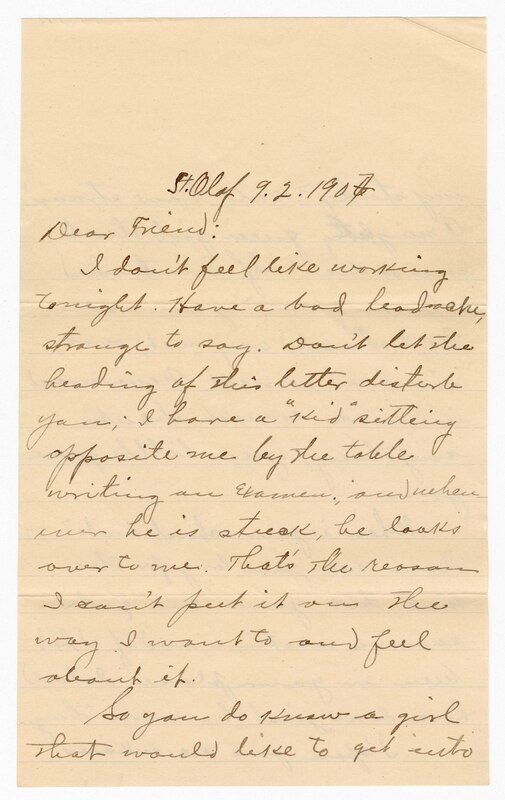 St. Olaf 9.2.1906
Dear Friend:
I don't feel like working
tonight. Have a bad headache,
strange to say. Don't let the
heading of this letter disturb
you; I have a "kid" sitting
opposite me by the table
writing an Examen, and when
ever he is stuck, he looks
over to me. That's the reason
I can't put it on the
way I want to and feel
about it.
So you do know a girl
that would like to get into